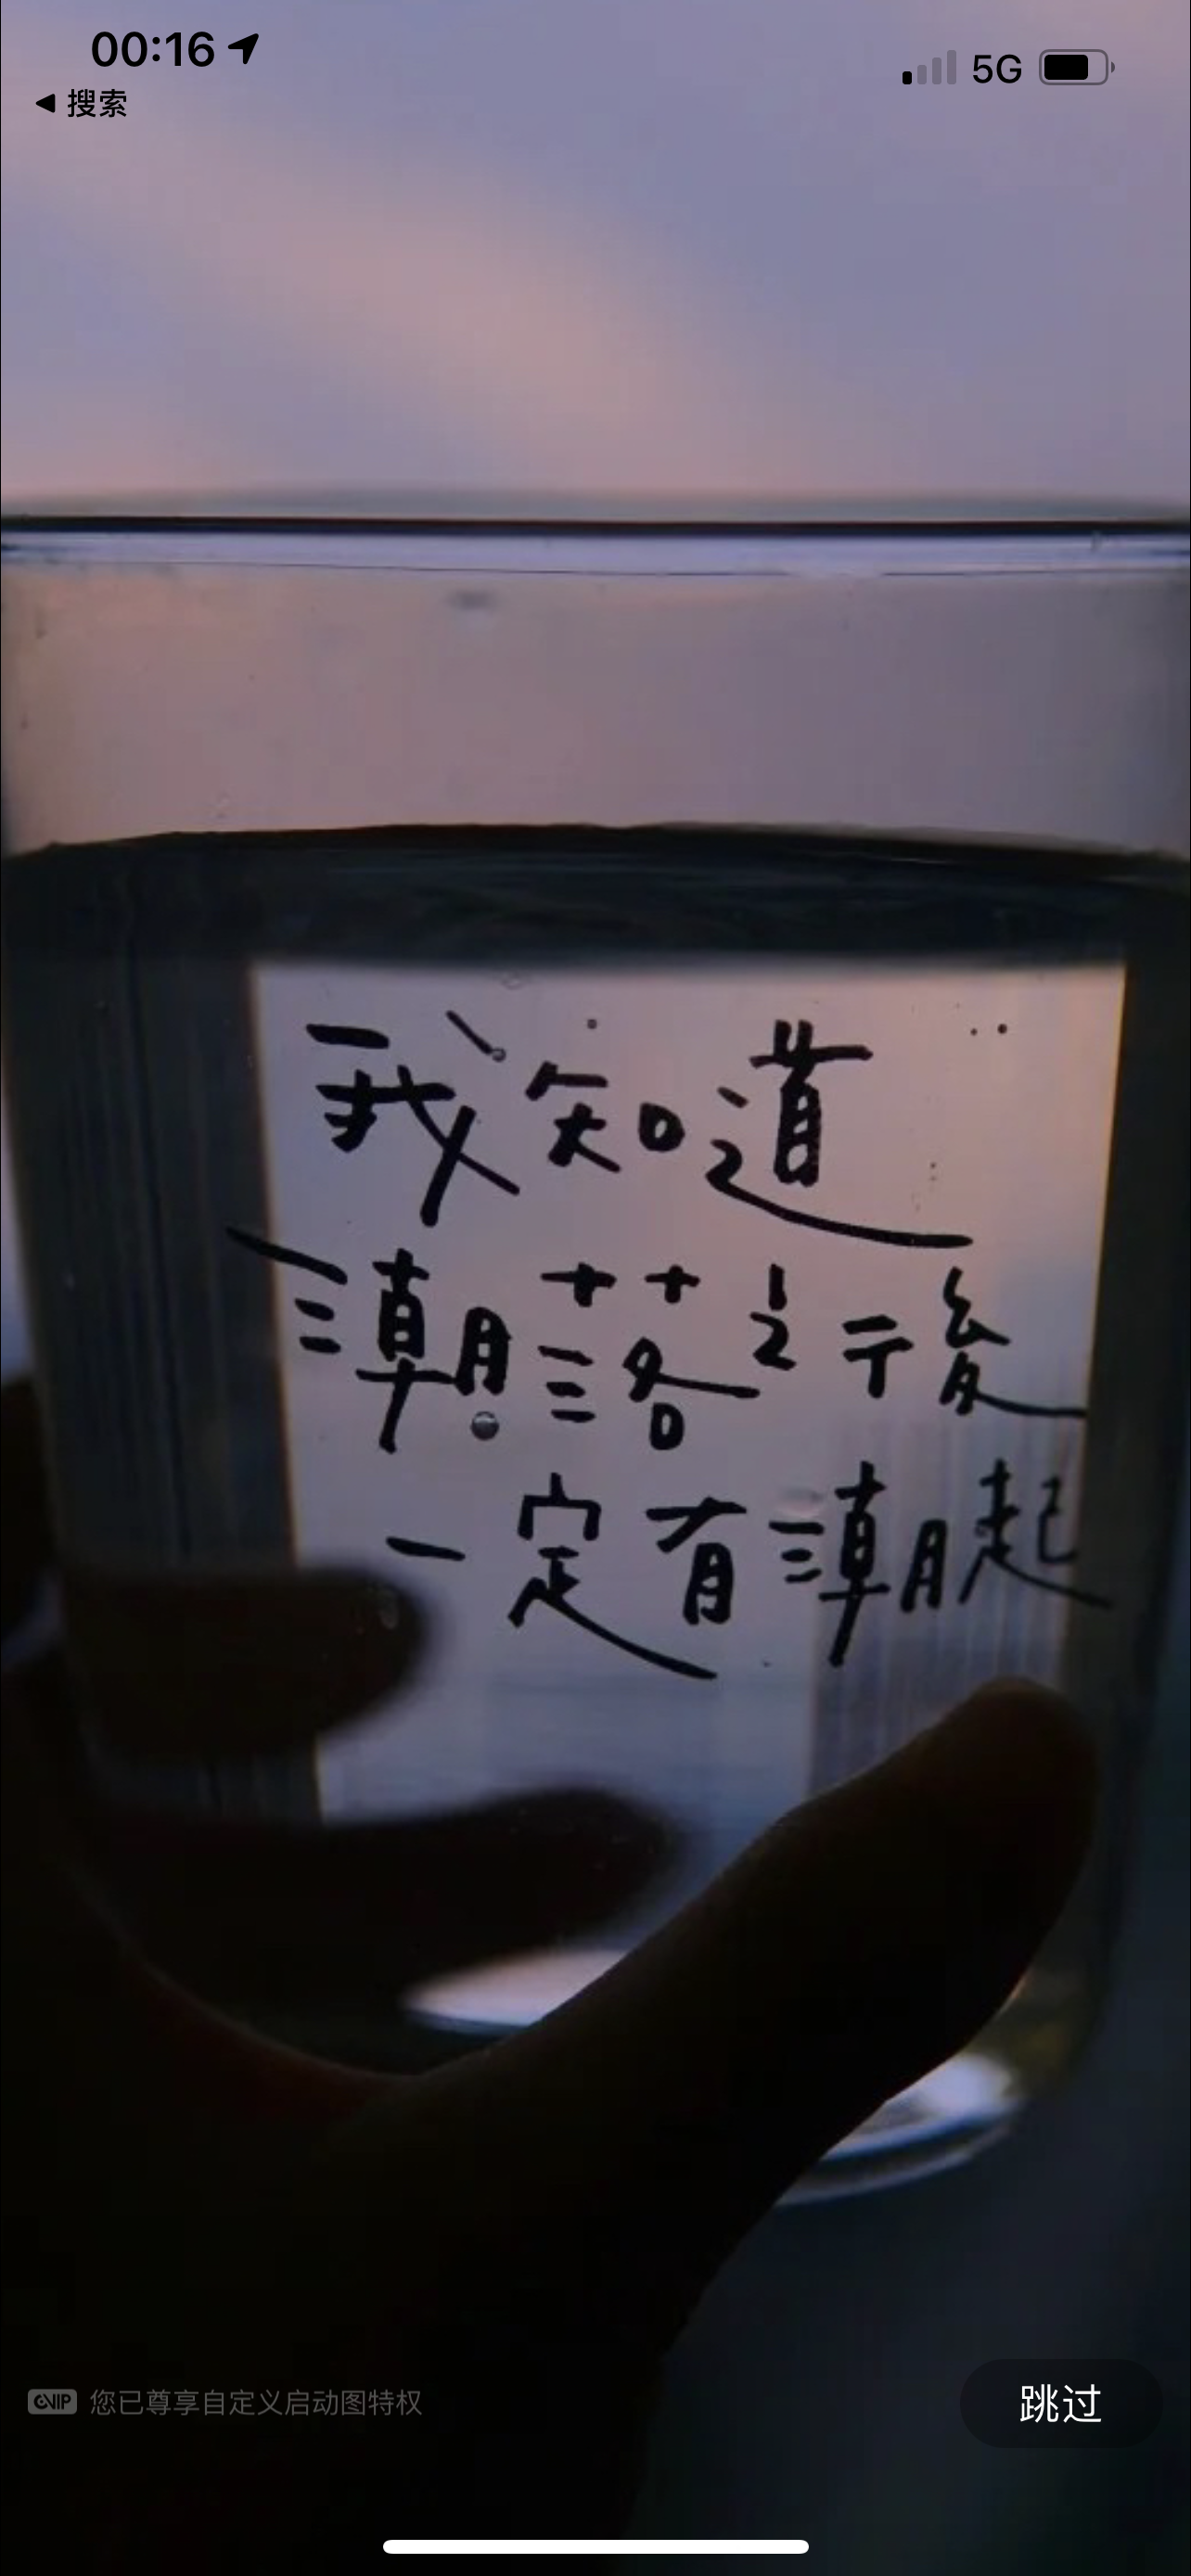 00:16
5G
搜索
我知道
潮落之後
一定有潮起
VIP 您已尊享自定义启动图特权
跳过